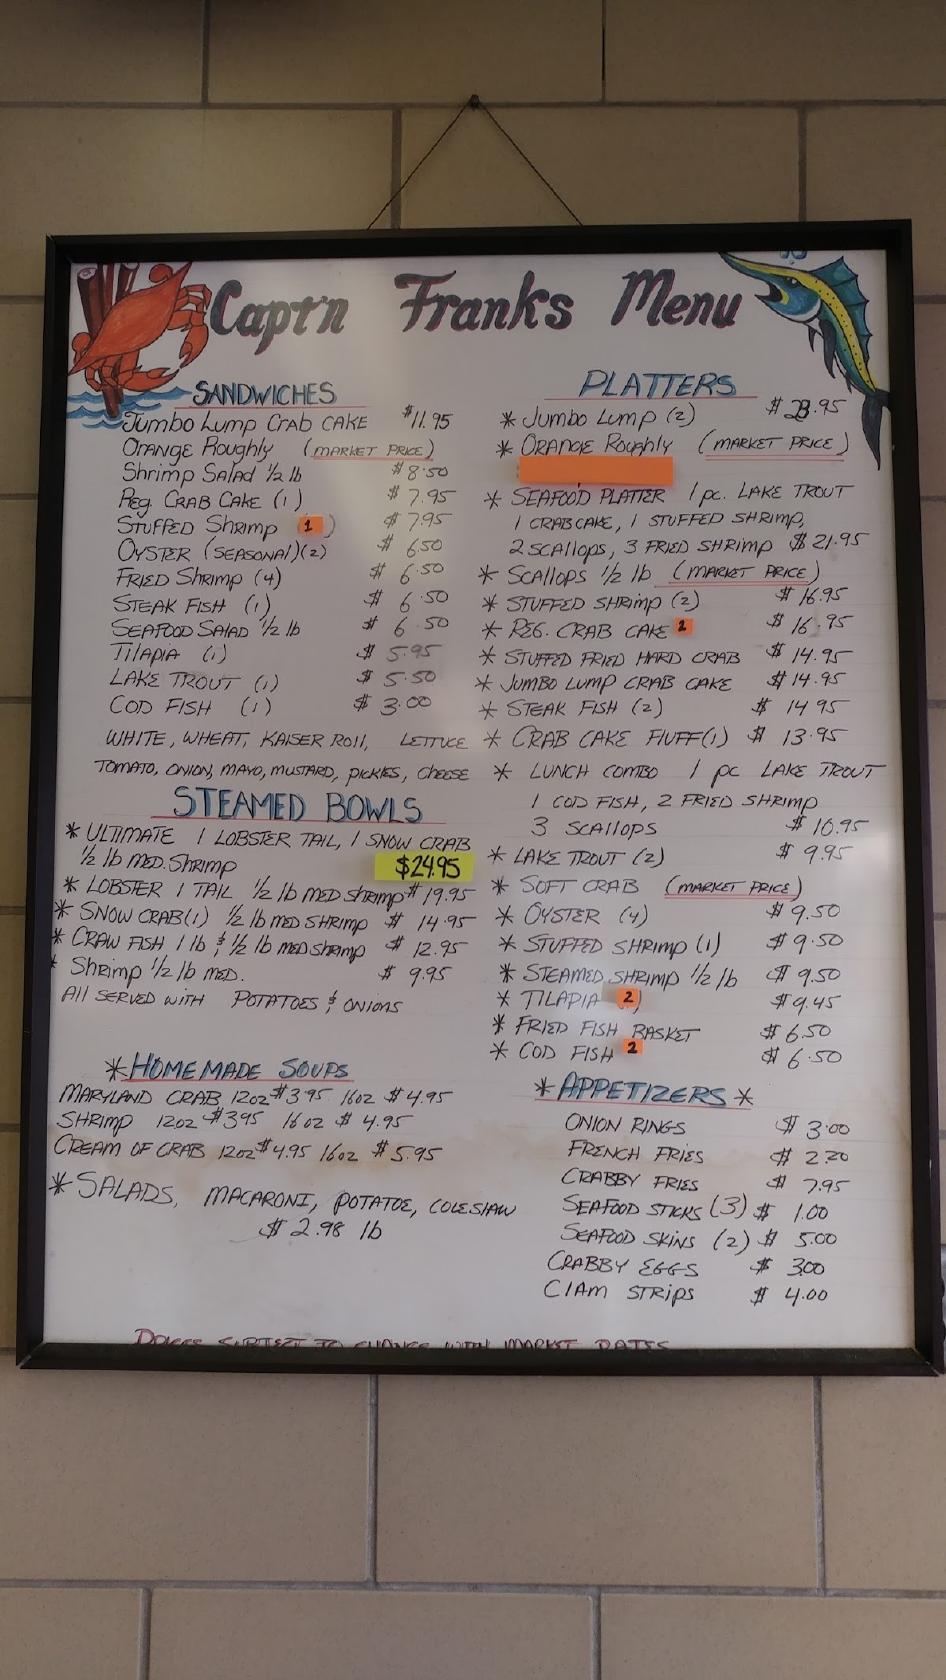 Capt'n Franks Menu
SANDWICHES
Jumbo Lump Crab CAKE $11.95
ORANGE Roughly (MARKET PRICE)
Shrimp Salad 1/2 lb $8.50
Reg. CRAB CAKE (1) $7.95
STUFFED Shrimp 1) $7.95
OYSTER (SEASONAL)(2) $6.50
FRIED Shrimp (4) $6.50
STEAK FISH (1) $6.50
SEAFOOD SALAD 1/2 lb $6.50
TILAPIA (1) $5.95
LAKE TROUT (1) $5.50
COD FISH (1) $3.00
WHITE, WHEAT, KAISER ROLL, LETTUCE
TOMATO, ONION, MAYO, MUSTARD, PICKLES, CHEESE
STEAMED BOWLS
* ULTIMATE 1 LOBSTER TAIL, 1 SNOW CRAB
1/2 lb MED. Shrimp $24.95
* LOBSTER 1 TAIL 1/2 lb MED Shrimp $19.95
* SNOW CRAB(1) 1/2 lb MED SHRIMP $14.95
* CRAW FISH 1 lb & 1/2 lb MED Shrimp $12.95
* Shrimp 1/2 lb MED. $9.95
All SERVED WITH POTATOES & ONIONS
*HOMEMADE SOUPS
MARYLAND CRAB 12oz $3.95 16oz $4.95
SHRIMP 12oz $3.95 16oz $4.95
CREAM OF CRAB 12oz $4.95 16oz $5.95
*SALADS, MACARONI, POTATOE, COLESLAW
$2.98 lb
PLATTERS
* Jumbo Lump (2) $23.95
* ORANGE Roughly (MARKET PRICE)
* SEAFOOD PLATTER 1 pc. LAKE TROUT
1 CRABCAKE, 1 STUFFED SHRIMP,
2 SCALLOPS, 3 FRIED SHRIMP $21.95
* SCALLOPS 1/2 lb (MARKET PRICE)
* STUFFED SHRIMP (2) $16.95
* REG. CRAB CAKE 2 $16.95
* STUFFED FRIED HARD CRAB $14.95
* JUMBO LUMP CRAB CAKE $14.95
* STEAK FISH (2) $14.95
* CRAB CAKE FLUFF(1) $13.95
* LUNCH COMBO 1 pc LAKE TROUT
1 COD FISH, 2 FRIED SHRIMP
3 SCALLOPS $10.95
* LAKE TROUT (2) $9.95
* SOFT CRAB (MARKET PRICE)
* OYSTER (4) $9.50
* STUFFED SHRIMP (1) $9.50
* STEAMED SHRIMP 1/2 lb $9.50
* TILAPIA 2) $9.45
* FRIED FISH BASKET $6.50
* COD FISH 2 $6.50
*APPETIZERS*
ONION RINGS $3.00
FRENCH FRIES $2.20
CRABBY FRIES $7.95
SEAFOOD STICKS (3) $1.00
SEAFOOD SKINS (2) $5.00
CRABBY EGGS $3.00
CLAM STRIPS $4.00
PRICES SUBJECT TO CHANGE WITH MARKET RATES